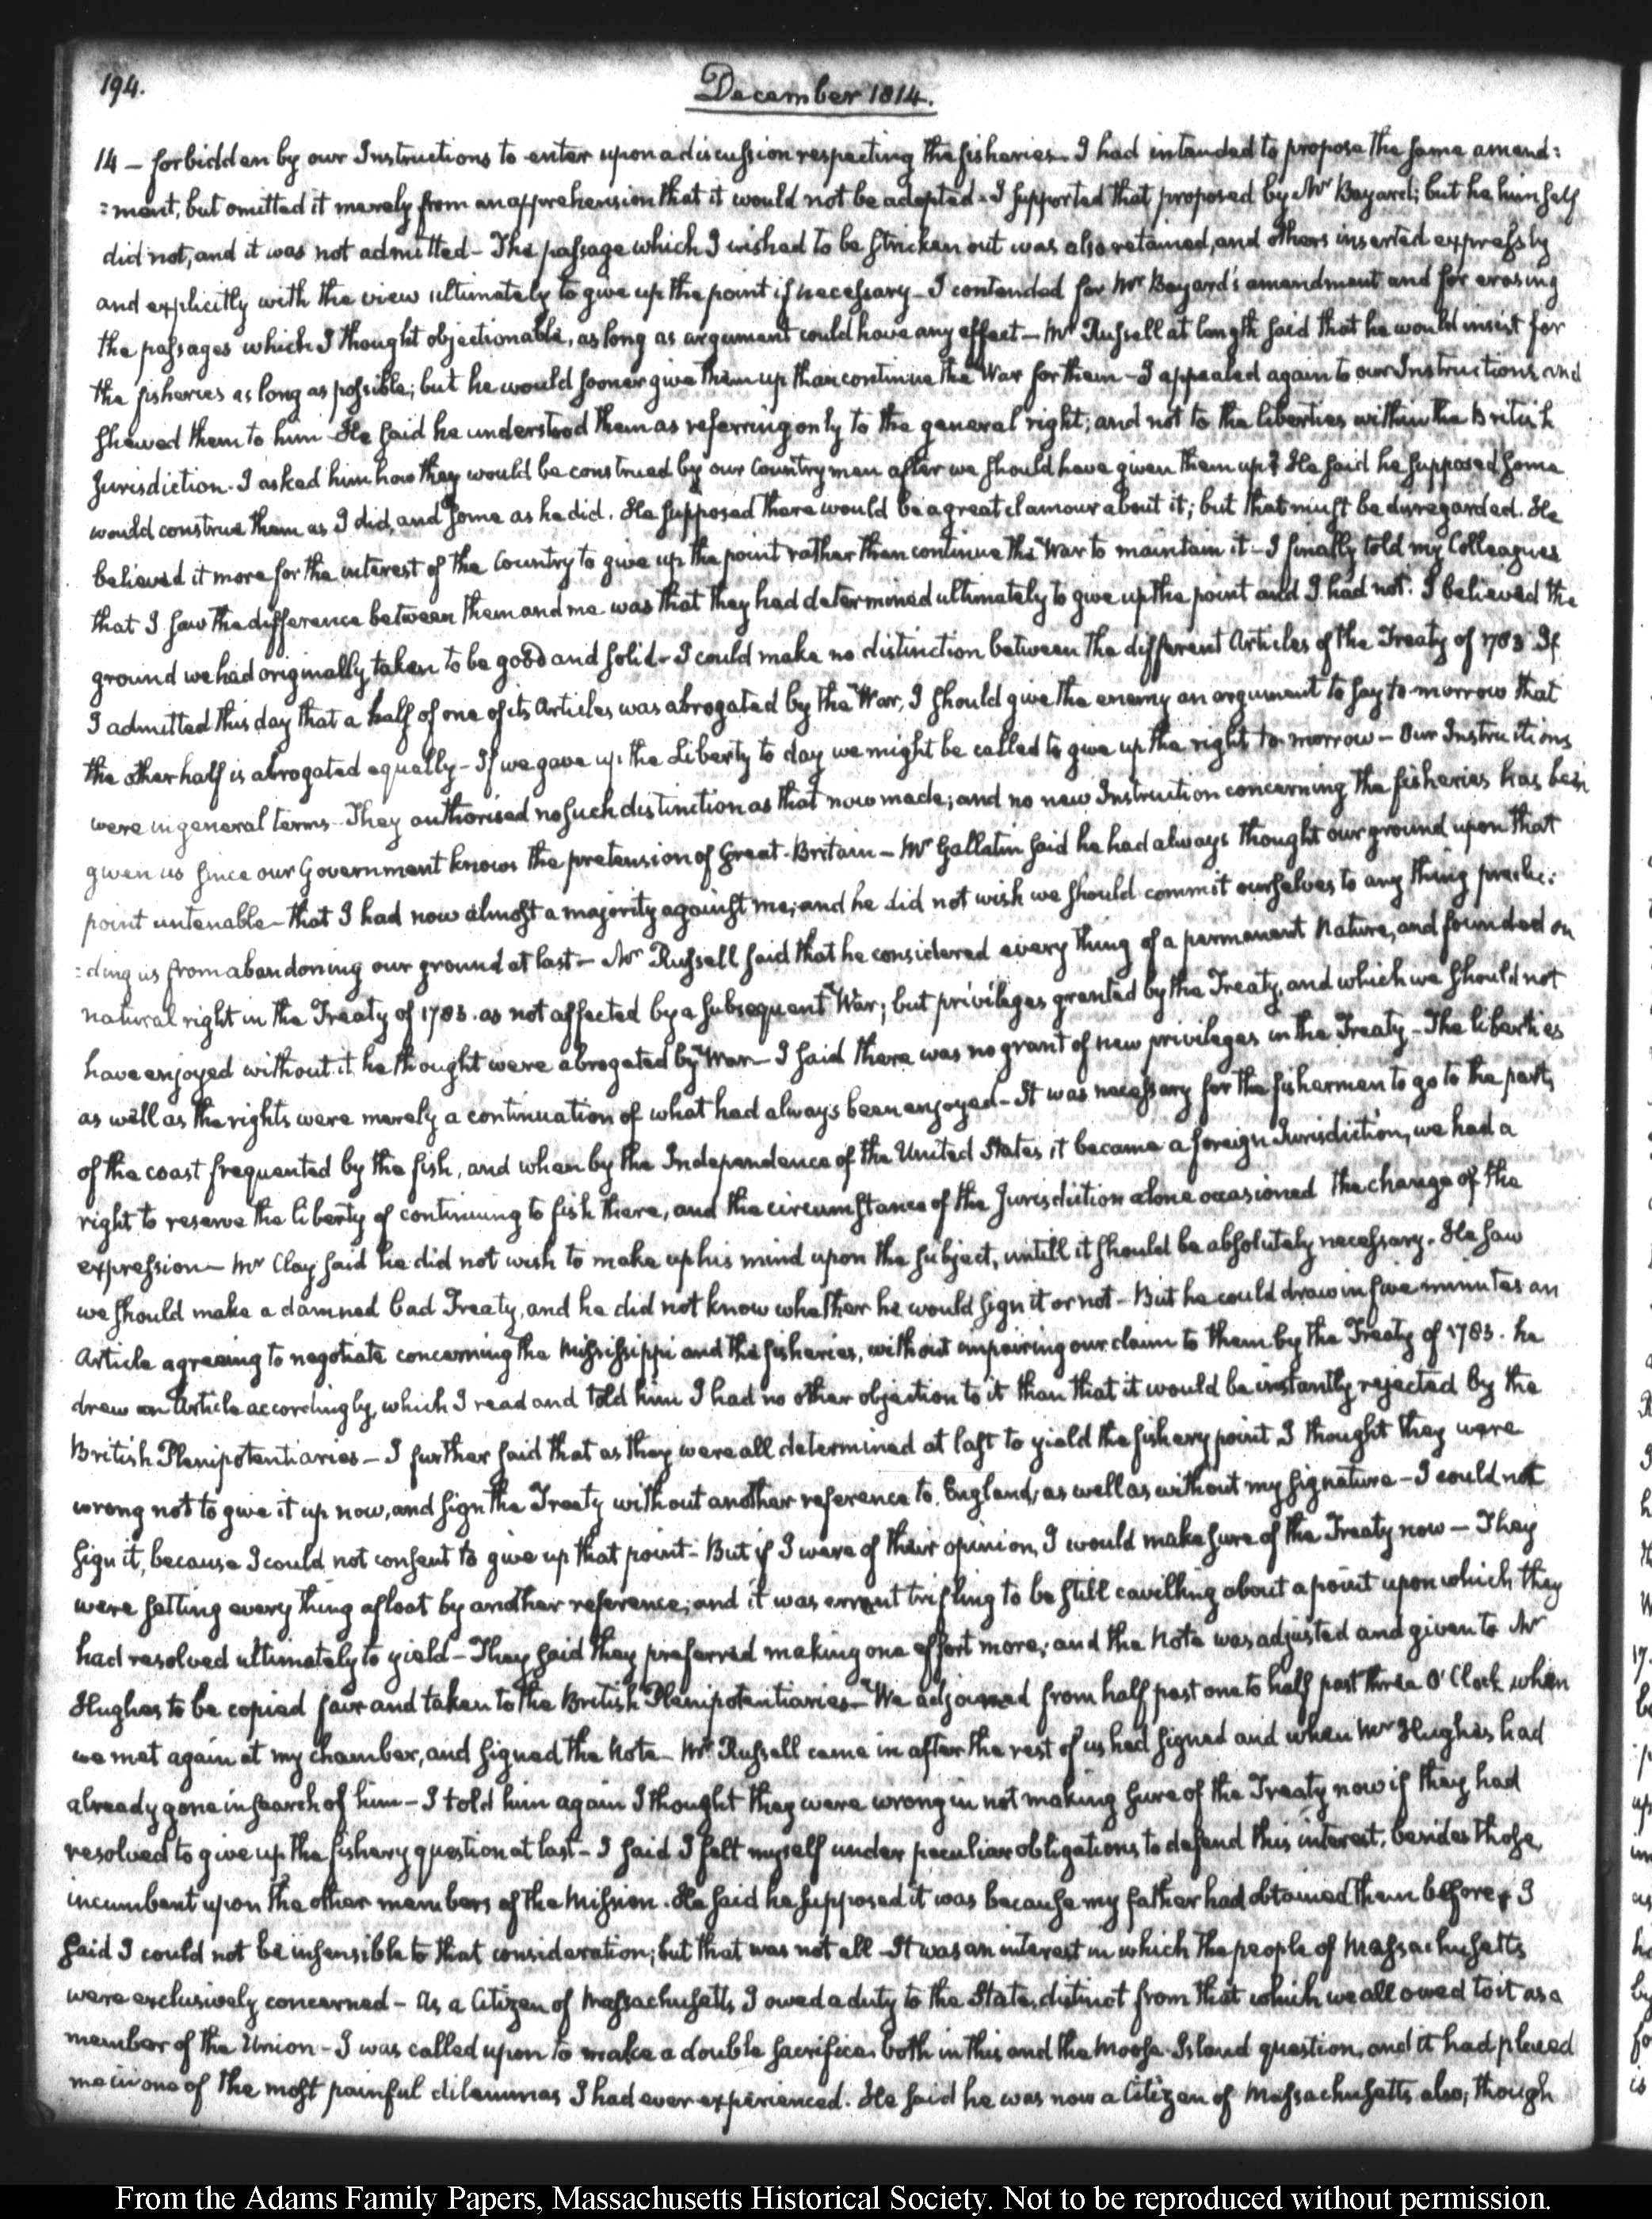 194.
December 1814.
14 - forbidden by our Instructions to enter upon a discussion respecting the fisheries - I had intended to propose the same amend:
:ment, but omitted it merely from an apprehension that it would not be adopted - I supported that proposed by Mr Bayard; but he himself
did not, and it was not admitted - The passage which I wished to be stricken out was also retained, and others inserted expressly
and explicitly with the view ultimately to give up the point if necessary - I contended for Mr Bayard's amendment and for erasing
the passages which I thought objectionable, as long as argument could have any effect - Mr Russell at length said that he would insist for
the fisheries as long as possible; but he would sooner give them up than continue the War for them - I appealed again to our Instructions and
shewed them to him - He said he understood them as referring only to the general right; and not to the liberties within the British
Jurisdiction. I asked him how they would be construed by our Countrymen after we should have given them up? He said he supposed some
would construe them as I did, and some as he did. He supposed there would be a great clamour about it; but that must be disregarded. He
believed it more for the interest of the Country to give up the point rather than continue the War to maintain it - I finally told my Colleagues
that I saw the difference between them and me was that they had determined ultimately to give up the point and I had not. I believed the
ground we had originally taken to be good and solid - I could make no distinction between the different Articles of the Treaty of 1783. If
I admitted this day that a half of one of its Articles was abrogated by the War, I should give the enemy an argument to say to-morrow that
the other half is abrogated equally - If we gave up the Liberty to day we might be called to give up the right to-morrow - Our Instructions
were in general terms - They authorised no such distinction as that now made; and no new Instruction concerning the fisheries has been
given us since our Government knows the pretension of Great-Britain - Mr Gallatin said he had always thought our ground upon that
point untenable - that I had now almost a majority against me; and he did not wish we should commit ourselves to any thing preclu:
:ding us from abandoning our ground at last - Mr Russell said that he considered every thing of a permanent Nature, and founded on
natural right in the Treaty of 1783. as not affected by a subsequent War; but privileges granted by the Treaty, and which we should not
have enjoyed without it he thought were abrogated by War - I said there was no grant of new privileges in the Treaty - The liberties
as well as the rights were merely a continuation of what had always been enjoyed - It was necessary for the fishermen to go to the parts
of the coast frequented by the fish, and when by the Independence of the United States it became a foreign Jurisdiction, we had a
right to reserve the liberty of continuing to fish there, and the circumstance of the Jurisdiction alone occasioned the change of the
expression - Mr Clay said he did not wish to make up his mind upon the subject, untill it should be absolutely necessary. He saw
we should make a damned bad Treaty, and he did not know whether he would sign it or not - But he could draw in five minutes an
Article agreeing to negotiate concerning the Mississippi and the fisheries, without impairing our claim to them by the Treaty of 1783. he
drew an Article accordingly, which I read and told him I had no other objection to it than that it would be instantly rejected by the
British Plenipotentiaries - I further said that as they were all determined at last to yield the fishery point I thought they were
wrong not to give it up now, and sign the Treaty without another reference to England, as well as without my signature - I could not
sign it, because I could not consent to give up that point - But if I were of their opinion, I would make sure of the Treaty now - They
were setting every thing afloat by another reference; and it was errant trifling to be still cavilling about a point upon which they
had resolved ultimately to yield - They said they preferred making one effort more; and the Note was adjusted and given to Mr
Hughes to be copied fair and taken to the British Plenipotentiaries - We adjourned from half past one to half past three O'Clock when
we met again at my chamber, and signed the Note - Mr Russell came in after the rest of us had signed and when Mr Hughes had
already gone in search of him - I told him again I thought they were wrong in not making sure of the Treaty now if they had
resolved to give up the fishery question at last - I said I felt myself under peculiar obligations to defend this interest, besides those
incumbent upon the other members of the Mission. He said he supposed it was because my father had obtained them before - I
said I could not be insensible to that consideration; but that was not all - It was an interest in which the people of Massachusetts
were exclusively concerned - As a Citizen of Massachusetts I owed a duty to the State, distinct from that which we all owed to it as a
member of the Union - I was called upon to make a double sacrifice, both in this and the Moose-Island question, and it had placed
me in one of the most painful dilemmas I had ever experienced. He said he was now a Citizen of Massachusetts also; though
From the Adams Family Papers, Massachusetts Historical Society. Not to be reproduced without permission.